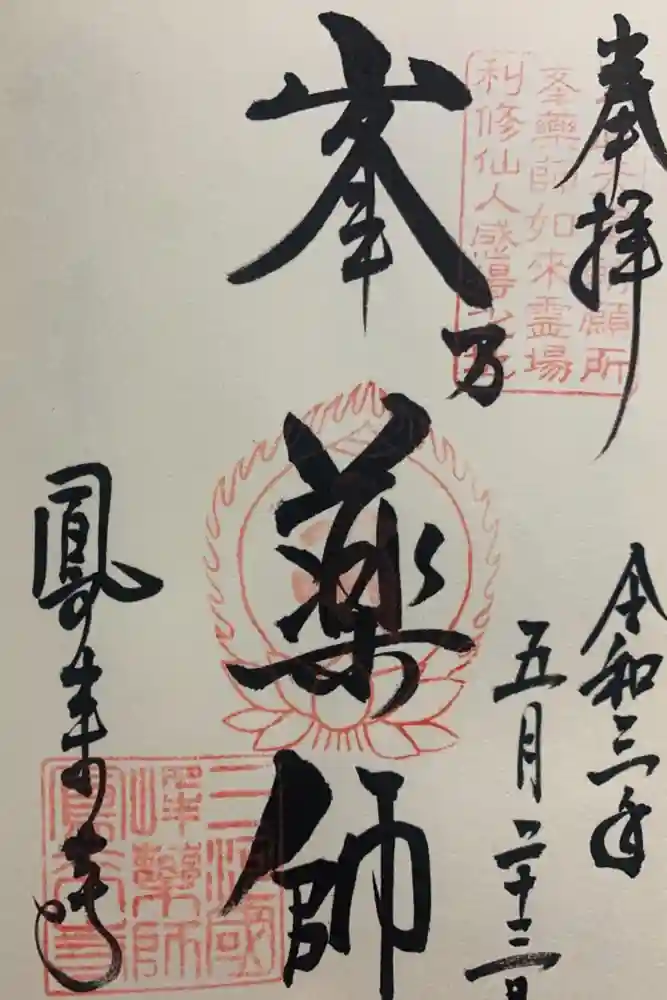 奉拝
令和三年
五月二十三日
峯乃薬師
鳳来寺
願所
峯薬師如来霊場
利修仙人感得
三河國
峰薬師